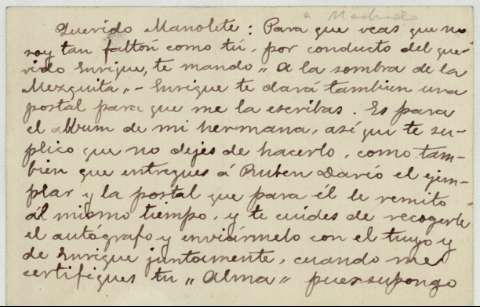 a Machado
Querido Manolete: Para que veas que no
soy tan faltón como tú, por conducto del que-
rido Enrique, te mando „A la sombra de la
Mezquita„ - Enrique te dará tambien una
postal para que me la escribas. Es para
el album de mi hermana, así qui te su-
plico que no dejes de hacerlo, como tam-
bien que entregues á Ruben Dario el ejem-
plar y la postal que para él le remito
al mismo tiempo, y te cuides de recogerle
el autógrafo y enviármelo con el tuyo y
de Enrique juntamente, cuando me
certifigues tu „Alma„ pues supongo